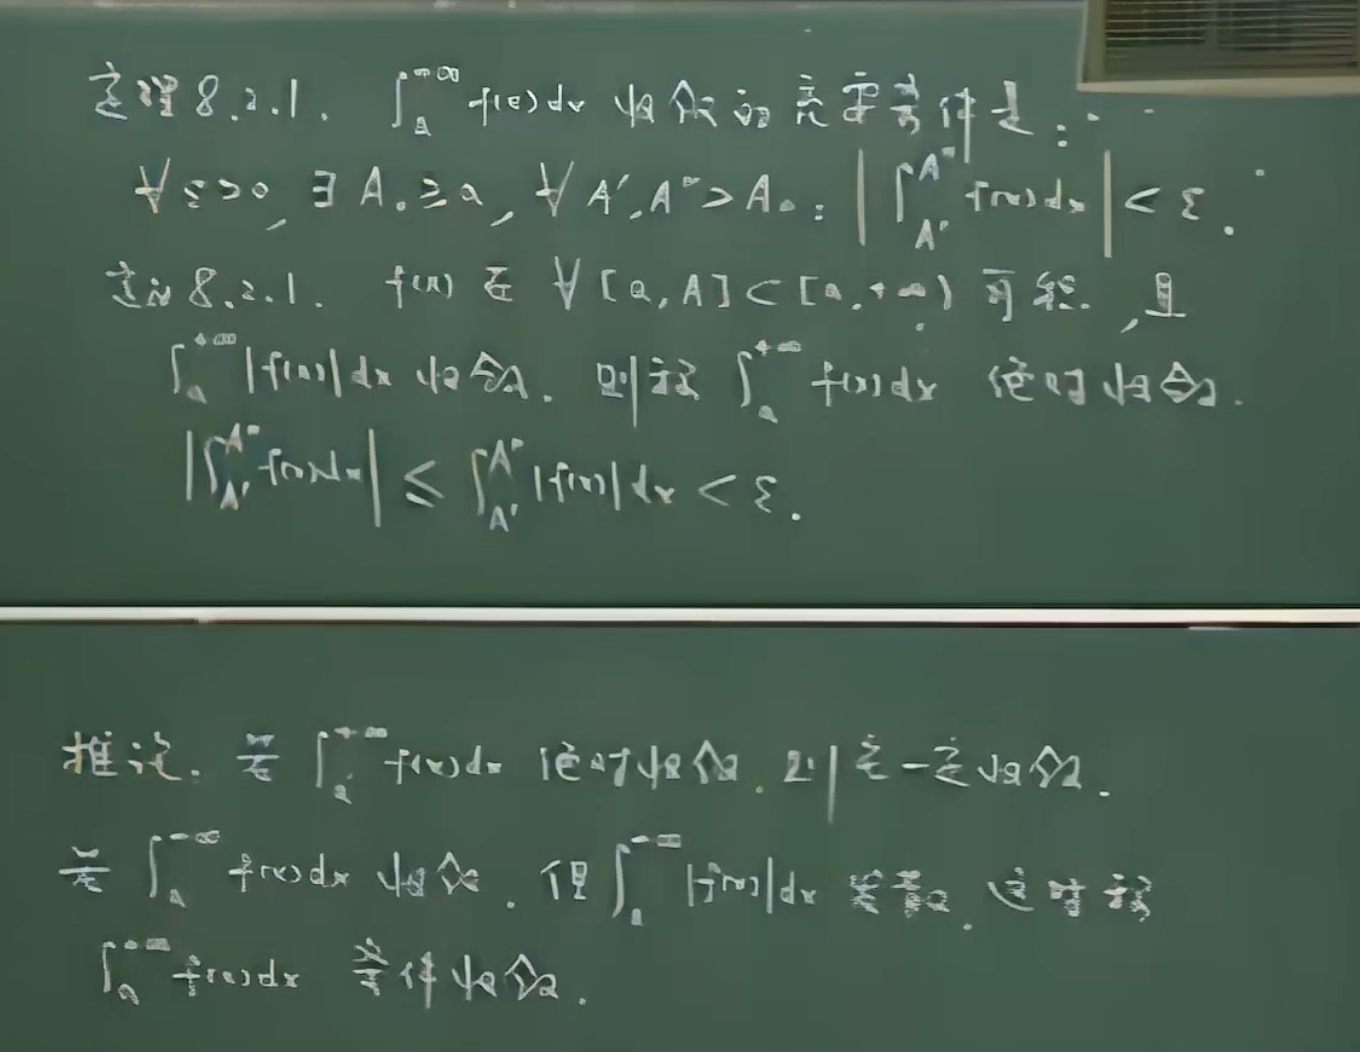 定理8.2.1. ∫_a^{+∞} f(x)dx 收敛的充要条件是:
∀ε>0, ∃A₀≥a, ∀A′,A″>A₀: |∫_{A′}^{A″} f(x)dx| < ε.
定义8.2.1. f(x) 在 ∀[a,A]⊂[a,+∞) 可积, 且
∫_a^{+∞} |f(x)|dx 收敛. 则称 ∫_a^{+∞} f(x)dx 绝对收敛.
|∫_{A′}^{A″} f(x)dx| ≤ ∫_{A′}^{A″} |f(x)|dx < ε.
推论. 若 ∫_a^{+∞} f(x)dx 绝对收敛. 则它一定收敛.
若 ∫_a^{+∞} f(x)dx 收敛. 但 ∫_a^{+∞} |f(x)|dx 发散. 这时称
∫_a^{+∞} f(x)dx 条件收敛.